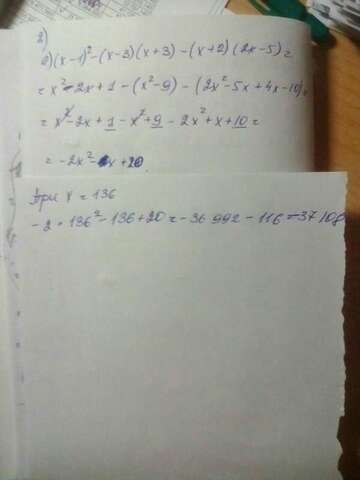 2)
а) (x-1)² - (x-3)(x+3) - (x+2)(2x-5) =
= x² - 2x + 1 - (x² - 9) - (2x² - 5x + 4x - 10) =
= x² - 2x + 1 - x² + 9 - 2x² + x + 10 =
= -2x² - x + 20
При x = 136
-2 · 136² - 136 + 20 = -36 992 - 116 = -37 108